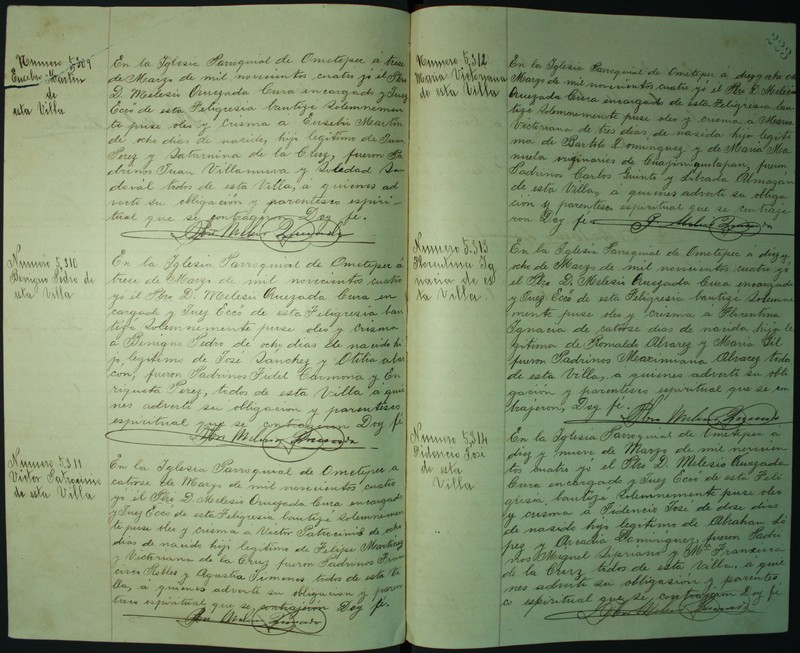 Numero 5,309
Eusebio Martin
de
esta Villa
En la Iglesia Parroquial de Ometepec á trese
de Marzo de mil novecientos cuatro yó el Pbro
D. Melesio Quezada Cura encargado y Juez
Eccó de esta Feligresia bautizé Solemnemen
te puse oleo y Crisma a Eusebio Martin
de ocho dias de nacido, hijo legitimo de Juan
Perez y Saturnina de la Cruz, fueron Pa
drinos Juan Villanueva y Soledad San
doval todos de esta Villa, a quienes ad
verti su obligacion y parentesco espiri-
tual que se contrageron Doy fé.
Pbro Melesio Quezada
Numero 5,310
Benigno Pedro de
esta Villa
En la Iglesia Parroquial de Ometepec á
trese de Marzo de mil novecientos cuatro
yó el Pbro D. Melesio Quezada Cura en
cargado y Juez Eccó de esta Feligresia bau
tizé Solemnemente puse oleo y crisma
á Benigno Pedro de ocho dias de nacido hi
jo, legitimo de José Sanchez y Otilia alar
con, fueron Padrinos Fidel Carmona y En
riqueta Perez, todos de esta Villa á quie
nes adverti su obligacion y parentesco
espiritual que se contrageron Doy fé
Pbro Melesio Quezada
Numero 5,311
Victor Patrocinio
de esta Villa
En la Iglesia Parroquial de Ometepec a
catorse de Marzo de mil novecientos cuatro
yó el Pbro D. Melesio Quezada Cura encargado
y Juez Eccó de esta Feligresia bautizé Solemnemen
te puse oleo y crisma a Victor Patrocinio de ocho
dias de nacido hijo legitimo de Felipe Martinez
y Victoriana de la Cruz fueron Padrinos Fran
cisco Robles y Agustia Jimenes todos de esta Vi
lla, á quienes adverti su obligacion y paren
tesco espiritual que se contrageron Doy fé.
Pbro Melesio Quezada
223
Numero 5,312
Maria Victoriana
de esta Villa
En la Iglesia Parroquial de Ometepec a diez y ocho de
Marzo de mil novecientos cuatro yó el Pbro D. Melesio
Quezada Cura encargado de esta Feligresia bau
tizé Solemnemente puse oleo y crisma a Maria
Victoriana de tres dias de nacida hija legiti
ma de Bartolo Dominguez y de Maria Ma
nuela originarios de Cuajinicuilapan, fueron
Padrinos Carlos Guinto y Librada Almazán
de esta Villa, á quienes adverti su obliga
ción y parentesco espiritual que se contraje
ron Doy fé P. Melesio Quezada
Numero 5,313
Florentina Ig
nacia de es
ta Villa
En la Iglesia Parroquial de Ometepec a diez y
ocho de Marzo de mil novecientos cuatro yó
el Pbro D. Melesio Quezada Cura encargado
y Juez Eccó de esta Feligresia bautizé Solemne
mente puse oleo y crisma a Florentina
Ignacia de catorse dias de nacida hija le
gitima de Romaldo Alvarez y Maria Gil
fueron Padrinos Maximiana Alvarez todos
de esta Villa, a quienes adverti su obli
gación y parentesco espiritual que se con
trajeron, Doy fé.
Pbro Melesio Quezada
Numero 5,314
Fidencio José
de esta
Villa
En la Iglesia Parroquial de Ometepec á
diez y nueve de Marzo de mil novecien
tos cuatro yó el Pbro D. Melesio Quezada
Cura encargado y Juez Eccó de esta Feli
gresia, bautizé Solemnemente puse oleo
y crisma a Fidencio José de dose dias
de nacido hijo legitimo de Abrahan Ló
pez y Arcadia Dominguez, fueron Padri
nos Miguel Sipriano y Mª Franscisca
de la Cruz todos de esta Villa. a quie
nes adverti su obligasión y parentes
co espiritual que se contrageron Doy fé
Pbro Melesio Quezada